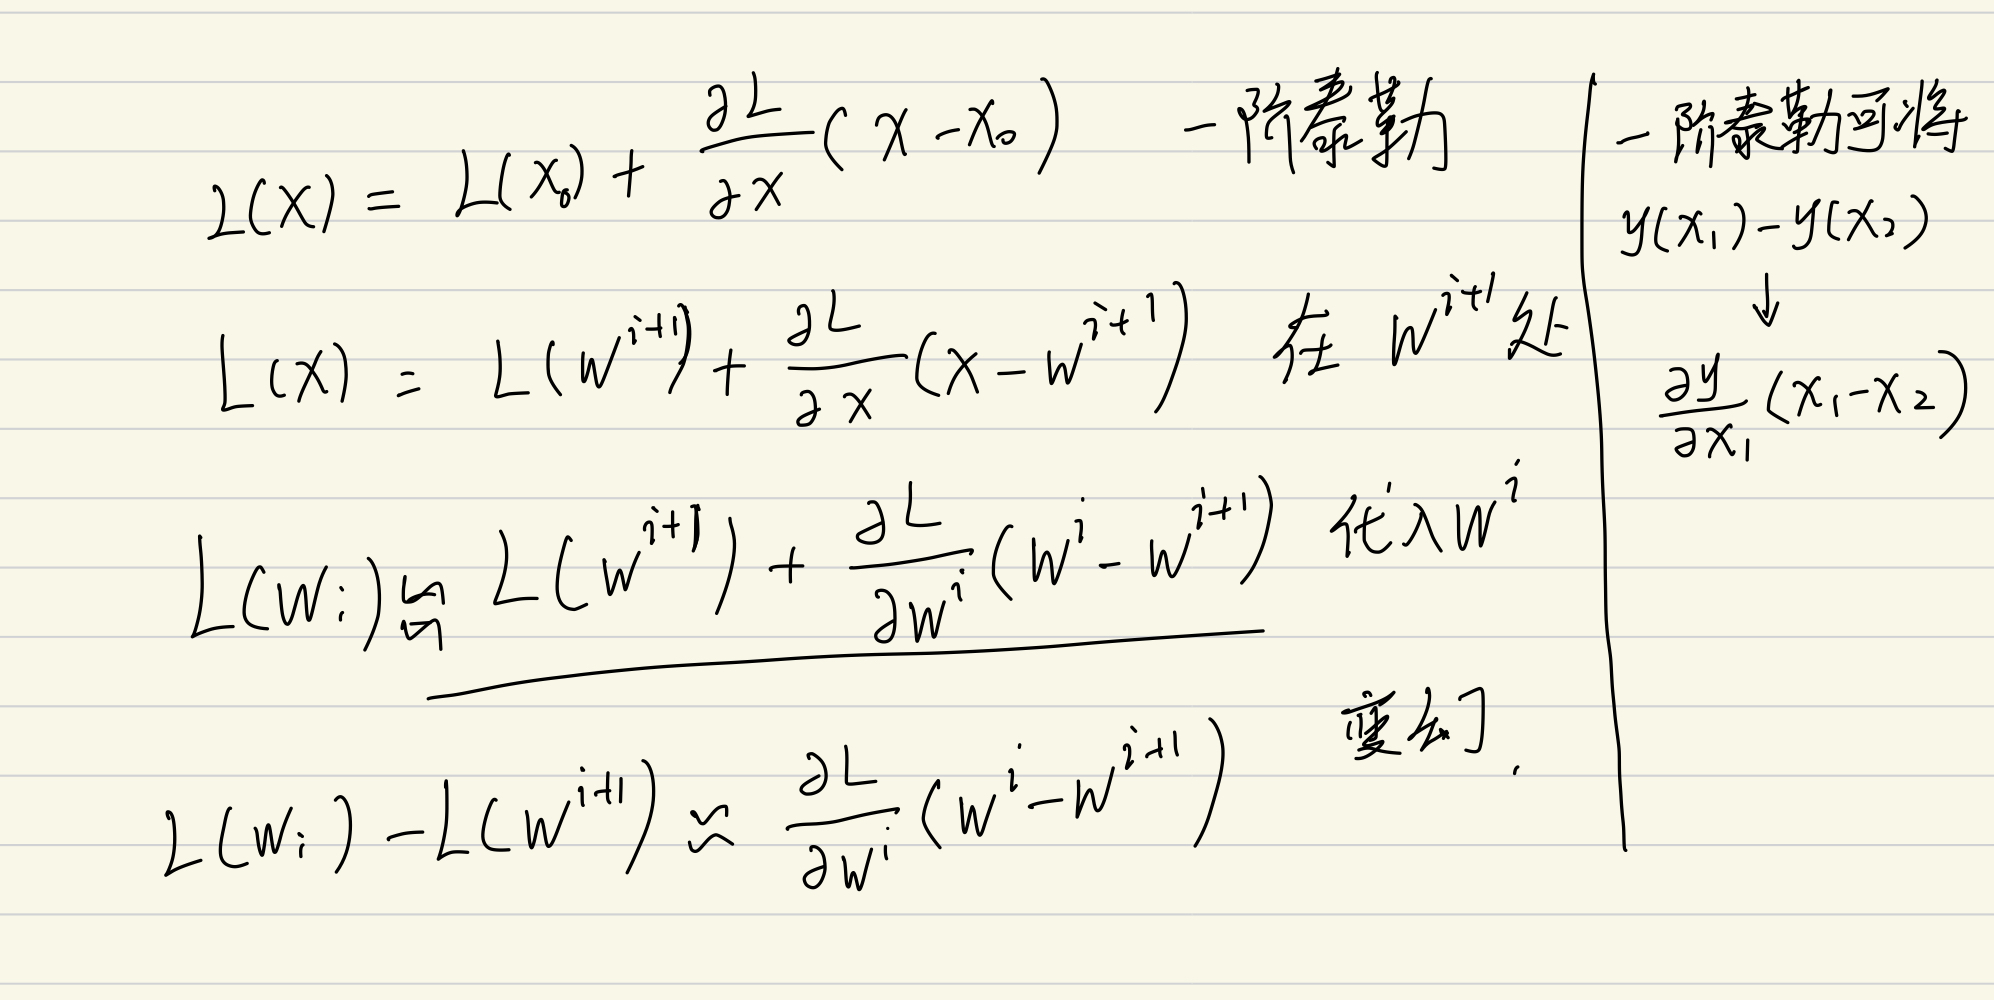 L(x) = L(x₀) + ∂L/∂x (x - x₀) 一阶泰勒
L(x) = L(w^{i+1}) + ∂L/∂x (x - w^{i+1}) 在 w^{i+1} 处
L(w_i) ≈ L(w^{i+1}) + ∂L/∂w^i (w^i - w^{i+1}) 代入 w^i
变幻.
L(w_i) - L(w^{i+1}) ≈ ∂L/∂w^i (w^i - w^{i+1})
一阶泰勒可将
y(x₁) - y(x₂)
↓
∂y/∂x₁ (x₁ - x₂)